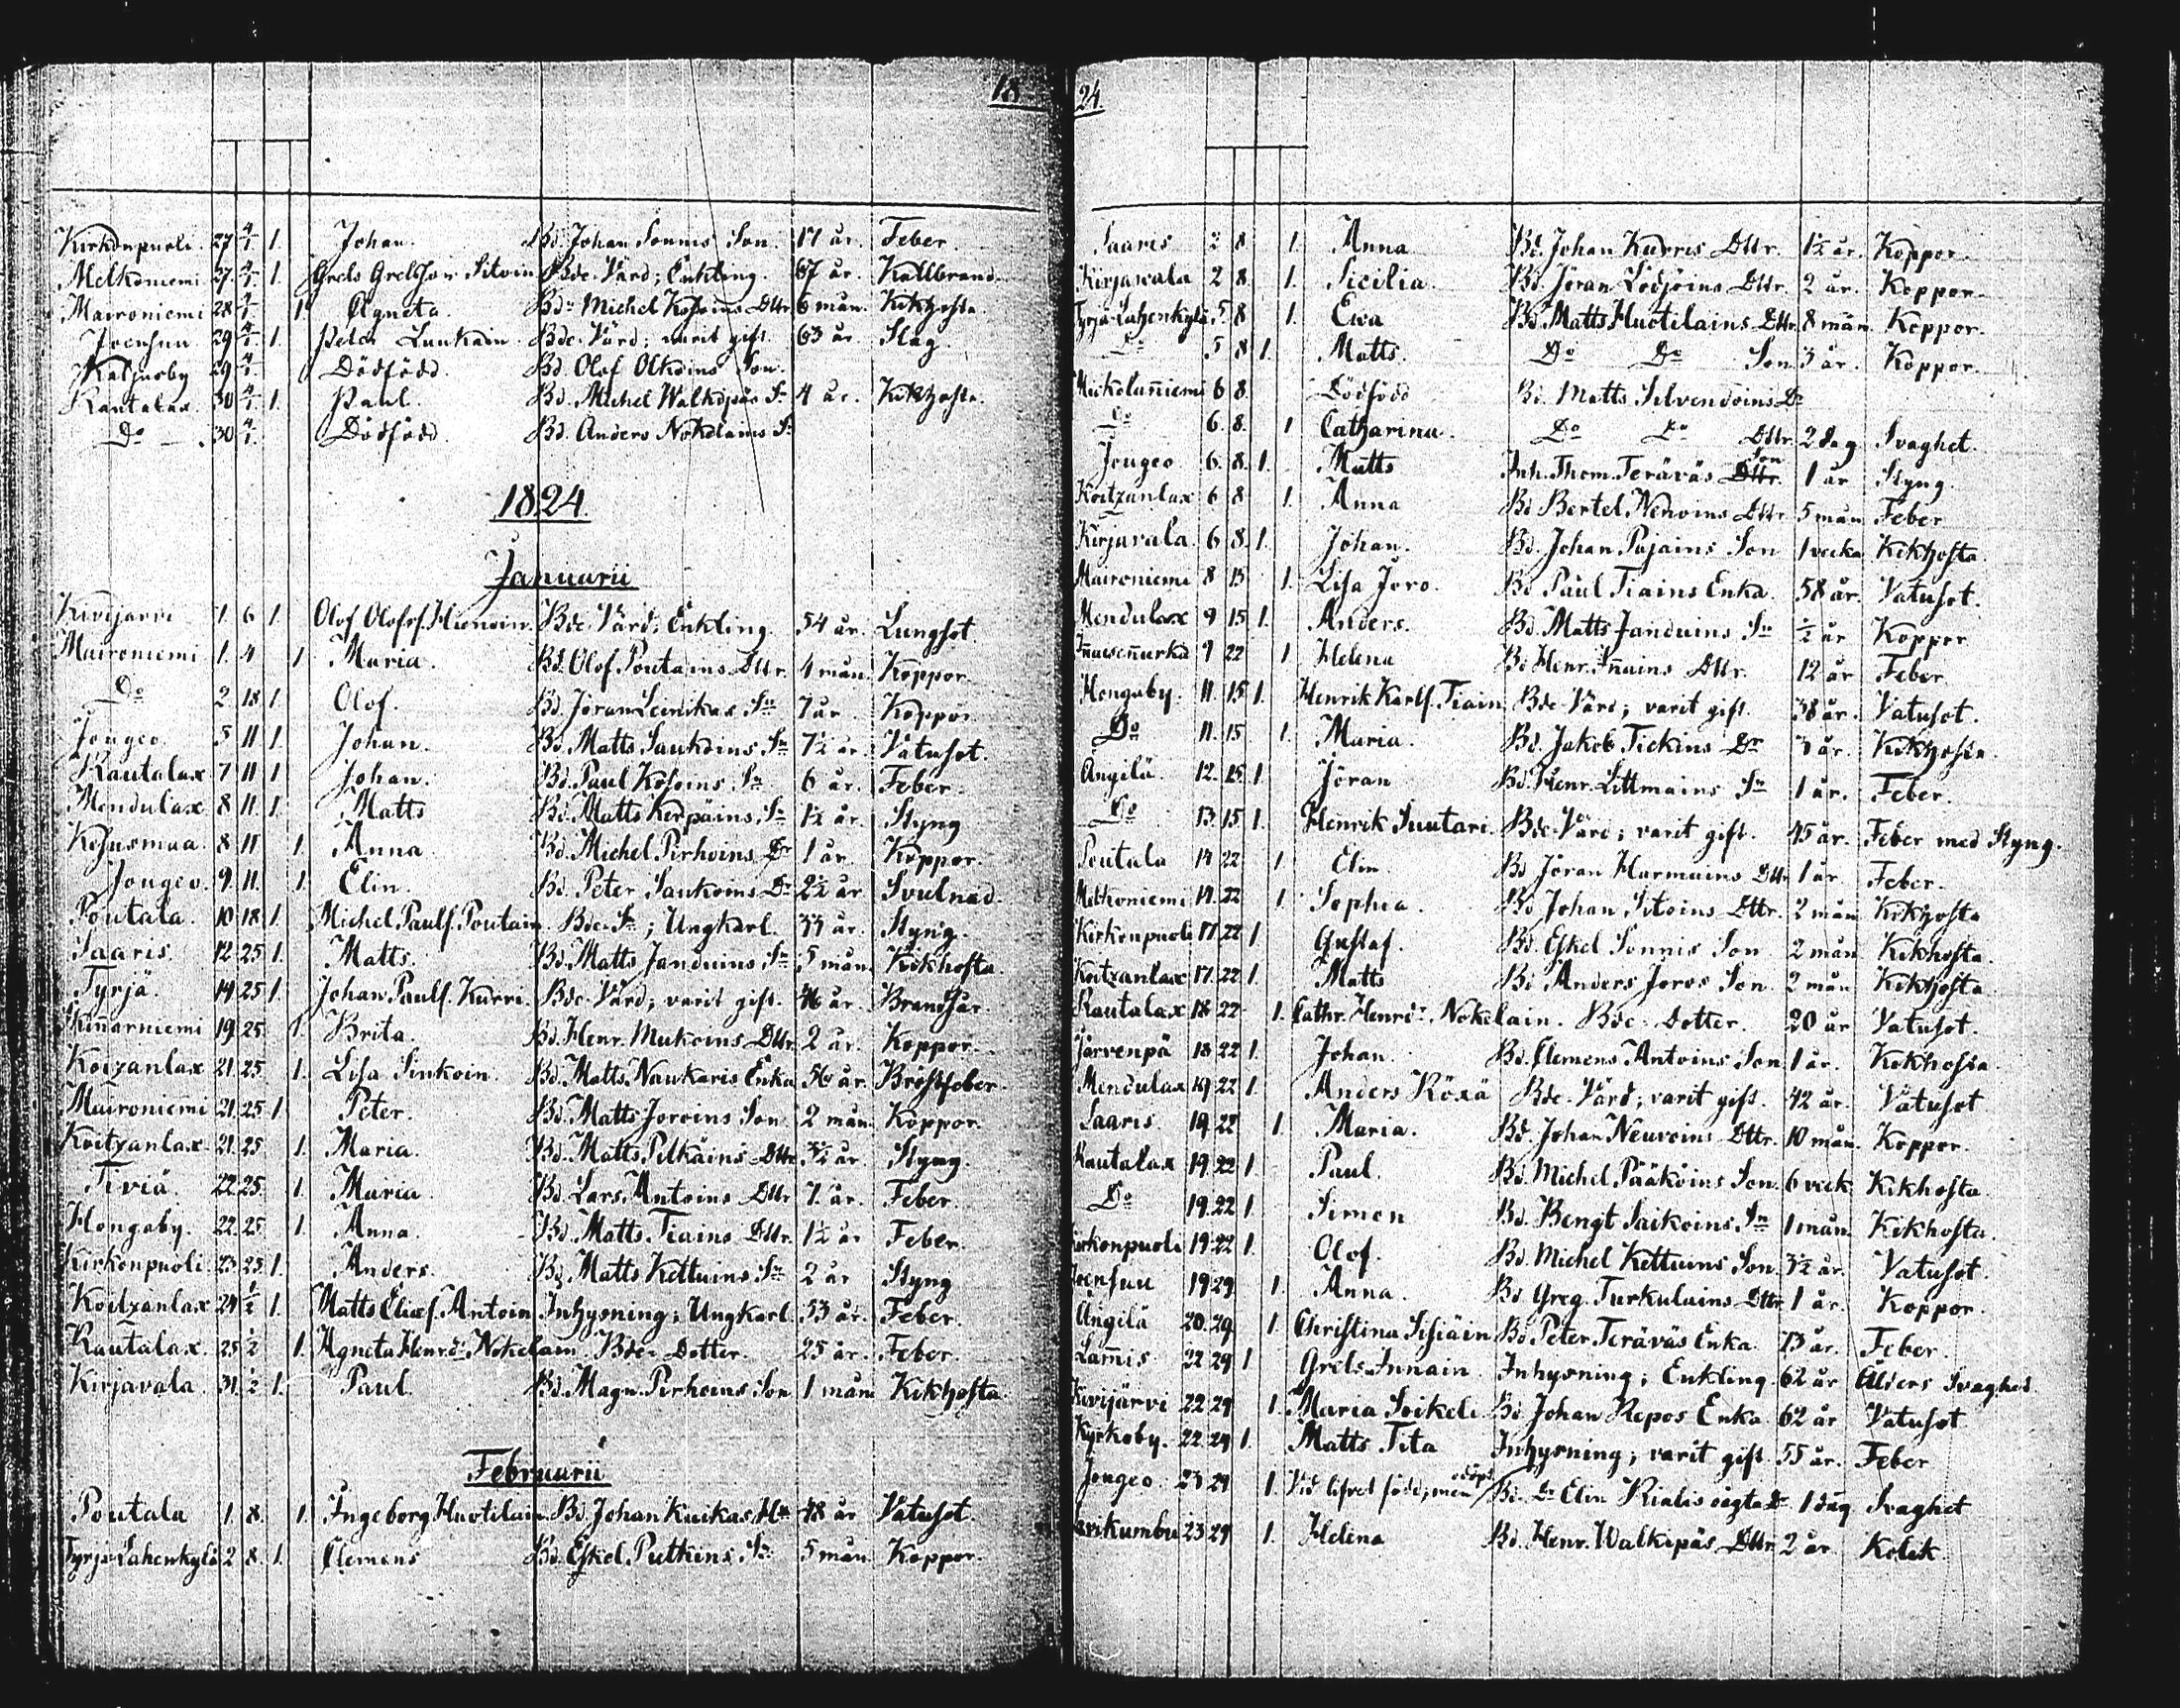 18
Kirkonpuoli. 27 4/1 1. Johan. Bd. Johan Sonnis Son. 17 år. Feber.
Melkoniemi 27. 4/1 1. Grels Grelsson Sitoin Bde. Värd; Enkling. 67 år. Kallbrand.
Maironiemi 28 4/1 1 Agneta. Bd. Michel Dttr 6 mån. Kikhosta.
Joensuu 29 4/1 1. Peter Laukain. Bde. Värd; varit gift. 63 år. Slag.
29 4/1 Dödfödd. Bd. Olof Olkoins Son.
Rautalax. 30 4/1 1. Paul. Bd. Michel Walkopäs Sn 4 år. Kikhosta.
Do 30 4/1 Dödfödd. Bd. Anders Nokelains Sn
1824.
Januarii
Kivijärvi 1. 6 1. Olof Olofs. Hienoin. Bde. Värd; Enkling. 54 år. Lungsot.
Maironiemi 1. 4 1 Maria. Bd. Olof Poutains Dttr. 4 mån. Koppor.
Do 2 18 1. Olof. Bd. Jöran Leinikas Sn 7 år. Koppor.
Jougeo. 5 11 1. Johan. Bd. Matts Saukoins Sn 7½ år. Vatusot.
Rautalax 7 11 1 Johan. Bd. Paul Kosoins Sn 6 år. Feber.
Mendulax 8 11. 1. Matts Bd. Matts Kerpäins Sn 1½ år. Styng
Kosusmaa. 8 11 1. Anna. Bd. Michel Pirhoins Dr 1 år. Koppor.
Jougeo. 9. 11. 1. Elin. Bd. Peter Saukoins Dr 2½ år Svulnad.
Poutala. 10 18 1. Michel Pauls. Poutain. Bde. Sn; Ungkarl. 33 år. Styng.
Saaris. 12 25 1. Matts. Bd. Matts Janduins Sn 5 mån. Kikhosta.
Tyrjä. 14 25 1. Johan Pauls. Kurri. Bde. Värd; varit gift. 46 år. Brandsår.
Kiñarniemi 19. 25. 1. Brita. Bd. Henr. Mukoins Dttr. 2 år. Koppor.
Koizanlax 21. 25 1. Lisa Sinkoin. Bd. Matts Naukaris Enka 56 år. Bröstfeber.
Maironiemi 21. 25 1. Peter. Bd. Matts Joroins Son 2 mån Koppor.
Koitzanlax. 21. 25 1. Maria. Bd. Matts Pilkäins Dttr 3½ år. Styng.
Tiviä. 22 25 1. Maria. Bd. Lars Antoins Dttr 7. år. Feber.
Hongaby. 22. 25 1 Anna. Bd. Matts Tiains Dttr. 1½ år Feber.
Kirkonpuoli. 23 25 1. Anders. Bd. Matts Kettuins Sn 2 år Styng
Koitzanlax 24 1/2 1. Matts Elias. Antoin Inhysning; Ungkarl 53 år. Feber.
Rautalax. 25 1/2 1. Agneta Henr.dr Nokelain. Bde Dotter. 25 år. Feber.
Kirjavala. 31. 1/2 1. Paul. Bd. Magn. Pirhoins Son 1 mån Kikhosta
Februarii
Poutala 1. 8. 1. Ingeborg Huotilain. Bd. Johan Kuikas H. 48 år Vatusot.
Tyrjä Lahenkylä 2 8. 1. Clemens Bd. Eskel Putkins Sn 5 mån. Koppor.
24
Saaris 2 8 1. Anna Bd. Johan Kurris Dttr. 1½ år. Koppor.
Kirjavala 2 8. 1. Sicilia. Bd. Jöran Lodjoins Dttr. 2 år. Koppor.
Tyrjä Lahenkylä. 5 8 1. Ewa Bd. Matts Huotilains. Dttr 8 mån. Koppor.
Do 5 8 1. Matts. Do Do Son 3 år. Koppor.
Mickolañiemi 6 8. Dödfödd Bd. Matts Silvendoins Dr
Do 6. 8. 1 Catharina. Do Do Dttr. 2 dag Svaghet.
Jougeo 6. 8. 1. Matts Inh. Thom. Teräväs Dttr. Son 1 år Styng.
Koitzanlax 6 8 1. Anna Bd Bertel Nenoins Dttr 5 mån Feber
Kirjavala. 6 8. 1. Johan. Bd. Johan Pajains Son 1 vecka Kikhosta
Maironiemi 8 15 1. Lisa Joro. Bd Paul Tiains Enka. 58 år. Vatusot.
Mendulax 9 15 1. Anders. Bd. Matts Janduins Sn ½ år Koppor
9 22 1 Helena Bd Henr. Iñains Dttr. 12 år Feber
Hongaby. 11. 15 1. Henrik Karls. Tiain Bde Värd; varit gift. 38 år. Vatusot.
Do 11. 15 1. Maria. Bd. Jakob Tickins Dr 3 år. Kikhosta.
Angilä. 12. 15 1. Jöran Bd. Henr. Littmains Sn 1 år. Feber.
Do 13. 15 1. Henrik Suutari. Bde Värd; varit gift. 45 år. Feber med Styng.
Poutala 14 22 1 Elin Bd Jöran Harmains Dttr 1 år Feber.
Melkoniemi 14. 22 1 Sophia. Bd Johan Sitoins Dttr. 2 mån Kikhosta
Kirkonpuoli 17 22 1. Gustaf. Bd. Eskel Sonnis Son 2 mån Kikhosta.
Koitzanlax 17. 22 1. Matts Bd Anders Joros Son. 2 mån Kikhosta.
Rautalax 18 22 1. Cathr. Henr.dr Nokelain. Bde. Dotter. 20 år Vatusot.
Järvenpä 18 22 1. Johan. Bd. Clemens Antoins Son 1 år. Kikhosta.
Mendulax 19 22 1. Anders Röxä Bde. Värd; varit gift. 42 år. Vatusot
Saaris. 19. 22 1. Maria. Bd. Johan Neuvoins Dttr. 10 mån. Koppor.
Rautalax 19. 22 1. Paul. Bd. Michel Pääkoins Son. 6 veck. Kikhosta.
Do 19. 22 1. Simon Bd. Bengt Saikoins Sn 1 mån Kikhosta.
Kirkonpuoli 19. 22 1. Olof. Bd. Michel Kettuins Son. 3½ år. Vatusot.
Joensuu 19 29 1. Anna. Bd Greg. Turkulains Dttr 1 år. Koppor.
Angilä 20. 29. 1. Christina Sisiäin Bd Peter Teräväs Enka. 73 år. Feber.
Lam̃is. 22 29 1 Grels Innain Inhysning; Enkling. 62 år Ålders Svaghet.
Kivijärvi 22 29 1. Maria Soikeli Bd Johan Repos Enka. 62 år Vatusot
Kyrkoby. 22. 29 1. Matts Tita Inhysning; varit gift 55 år. Feber
Jougeo. 23 29 1. Vid lifvet född, men odöpt Bd. Dr Elin Rialis oägta Dr 1 dag Svaghet
23 29 1. Helena Bd. Henr. Walkepäs Dttr 2 år Kolik.